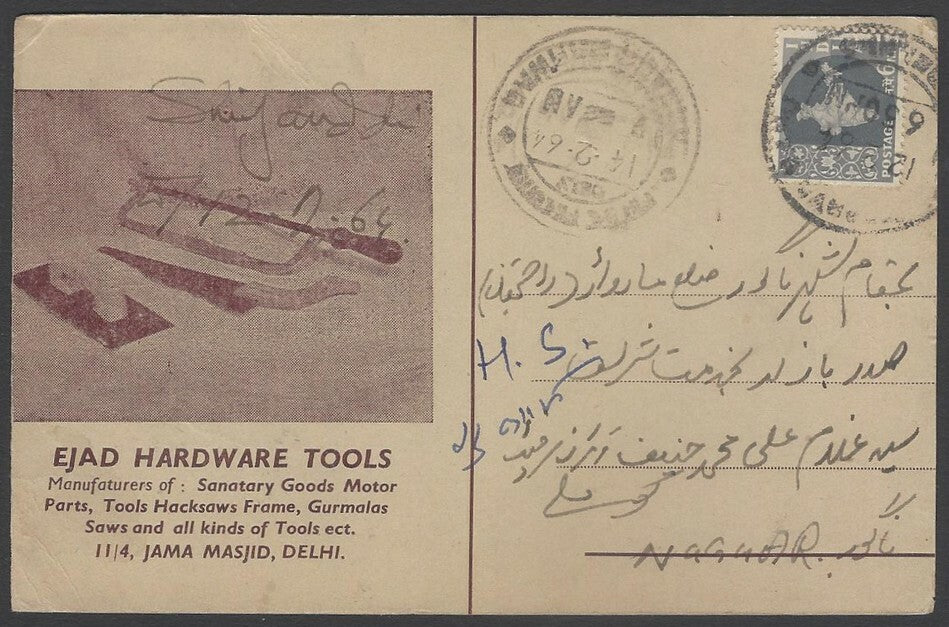 12.2.64.
EJAD HARDWARE TOOLS
Manufaturers of : Sanatary Goods Motor
Parts, Tools Hacksaws Frame, Gurmalas
Saws and all kinds of Tools ect.
11/4, JAMA MASJID, DELHI.
14.2.64
INDIA
POSTAGE
بمقام شہر ناگور ضلع مارواڑ (راجستھان)
صدر بازار بخدمت شریف
H. S
سید غلام علی محمد حنیف
NAGAUR.
ناگور